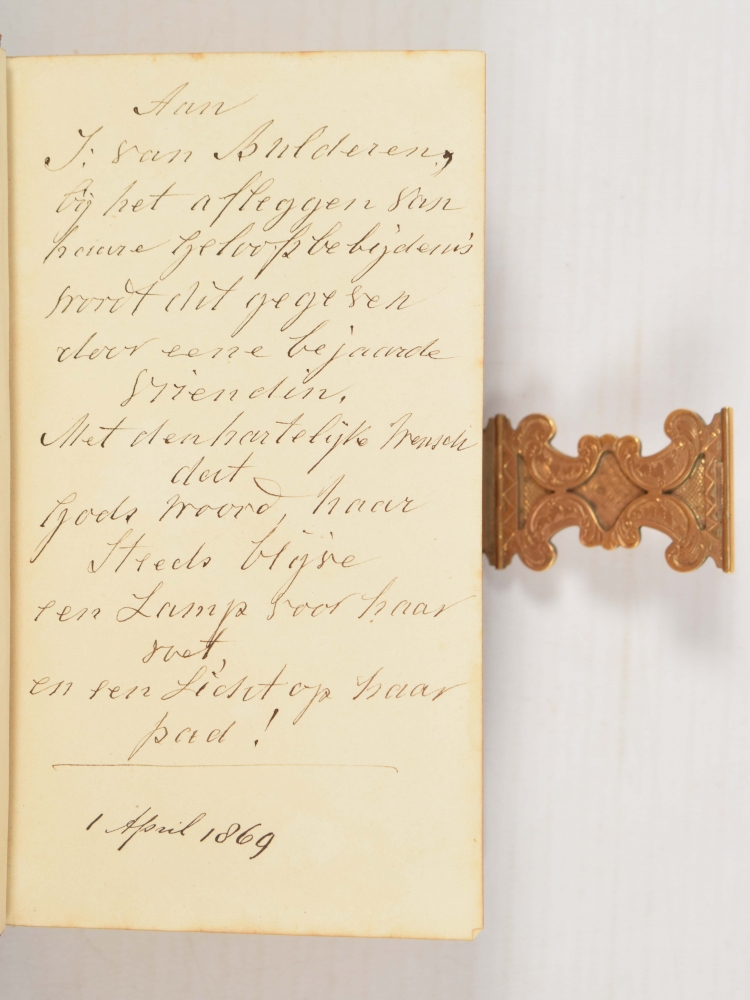 Aan
J. van Bulderen,
bij het afleggen van
haare Geloofsbebijdenis
wordt dit gegeven
door eene bejaarde
vriendin.
Met den hartelijke Wensch
dat
Gods Woord, haar
Steeds blijve
een Lamp voor haar
voet,
en een Licht op haar
pad!
1 April 1869